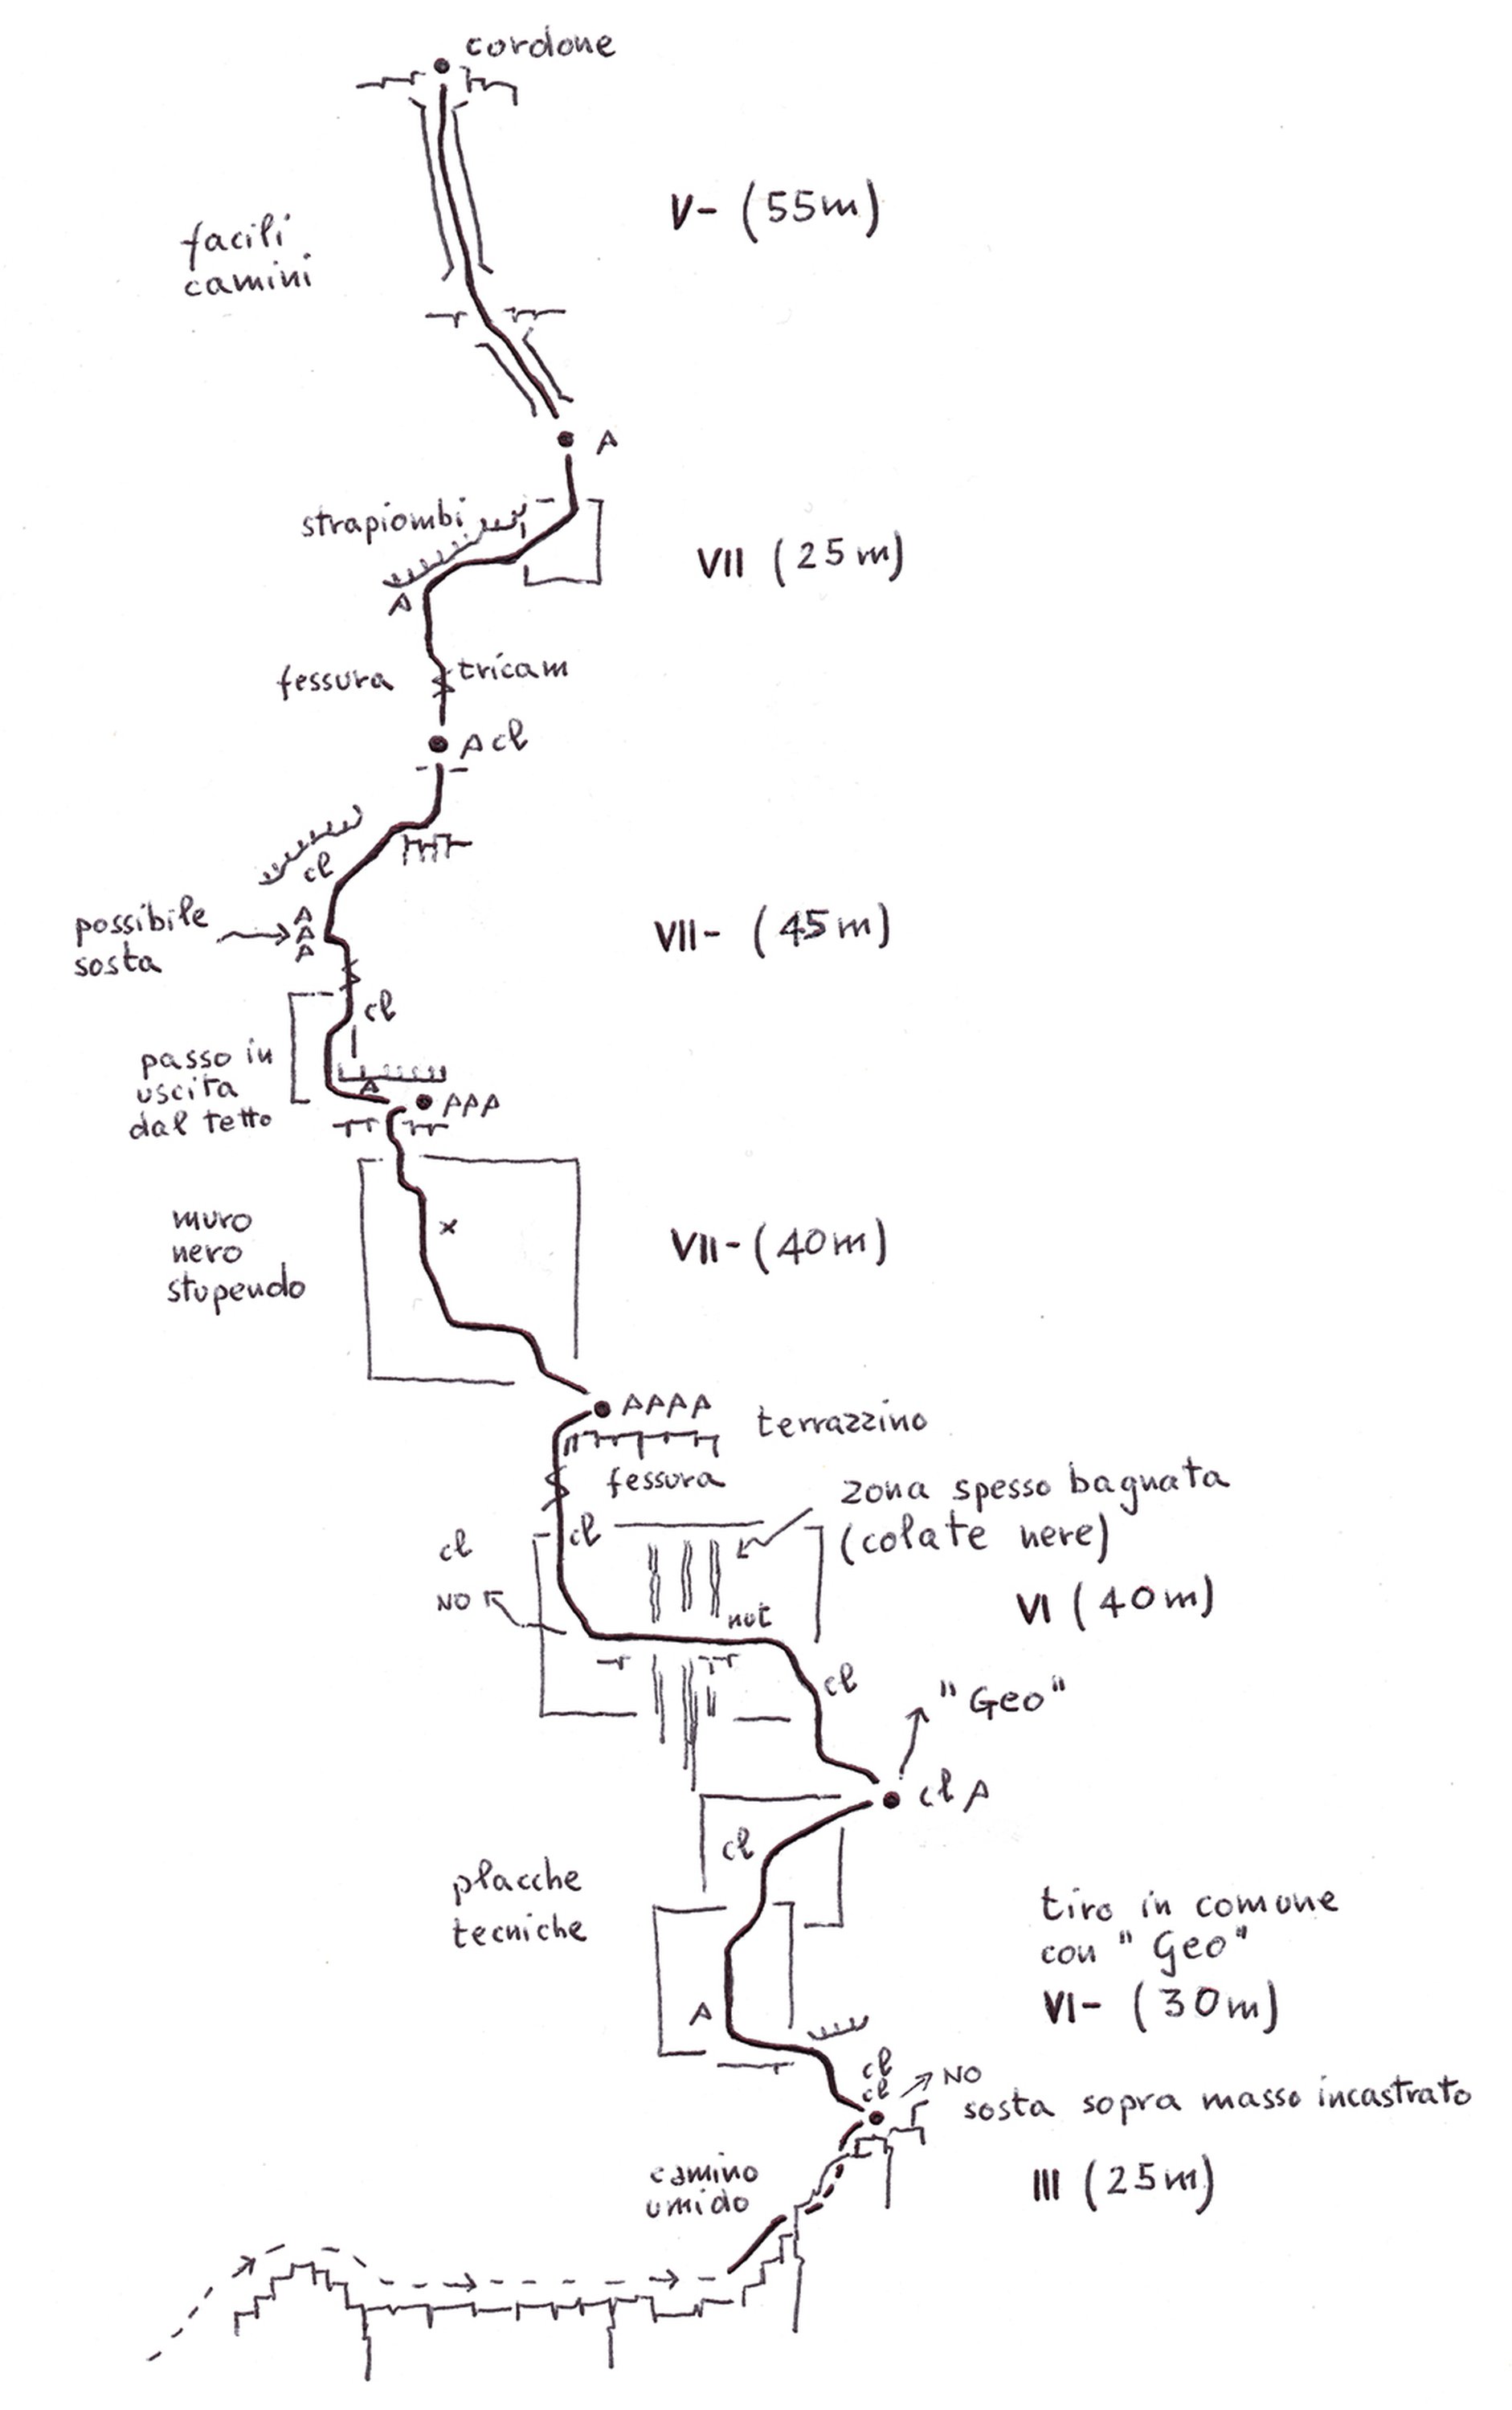 cordone
V- (55m)
facili
camini
A
strapiombi
VII (25m)
A
fessura
tricam
A cl
cl
possibile
sosta
A
A
A
VII- (45m)
cl
passo in
uscita
dal tetto
A
AAA
muro
nero
stupendo
x
VII- (40m)
AAAA
terrazzino
fessura
zona spesso bagnata
(colate nere)
cl
cl
NO
nut
VI (40m)
cl
"Geo"
cl A
cl
placche
tecniche
tiro in comune
con "Geo"
VI- (30m)
A
cl
cl
NO
sosta sopra masso incastrato
camino
umido
III (25m)